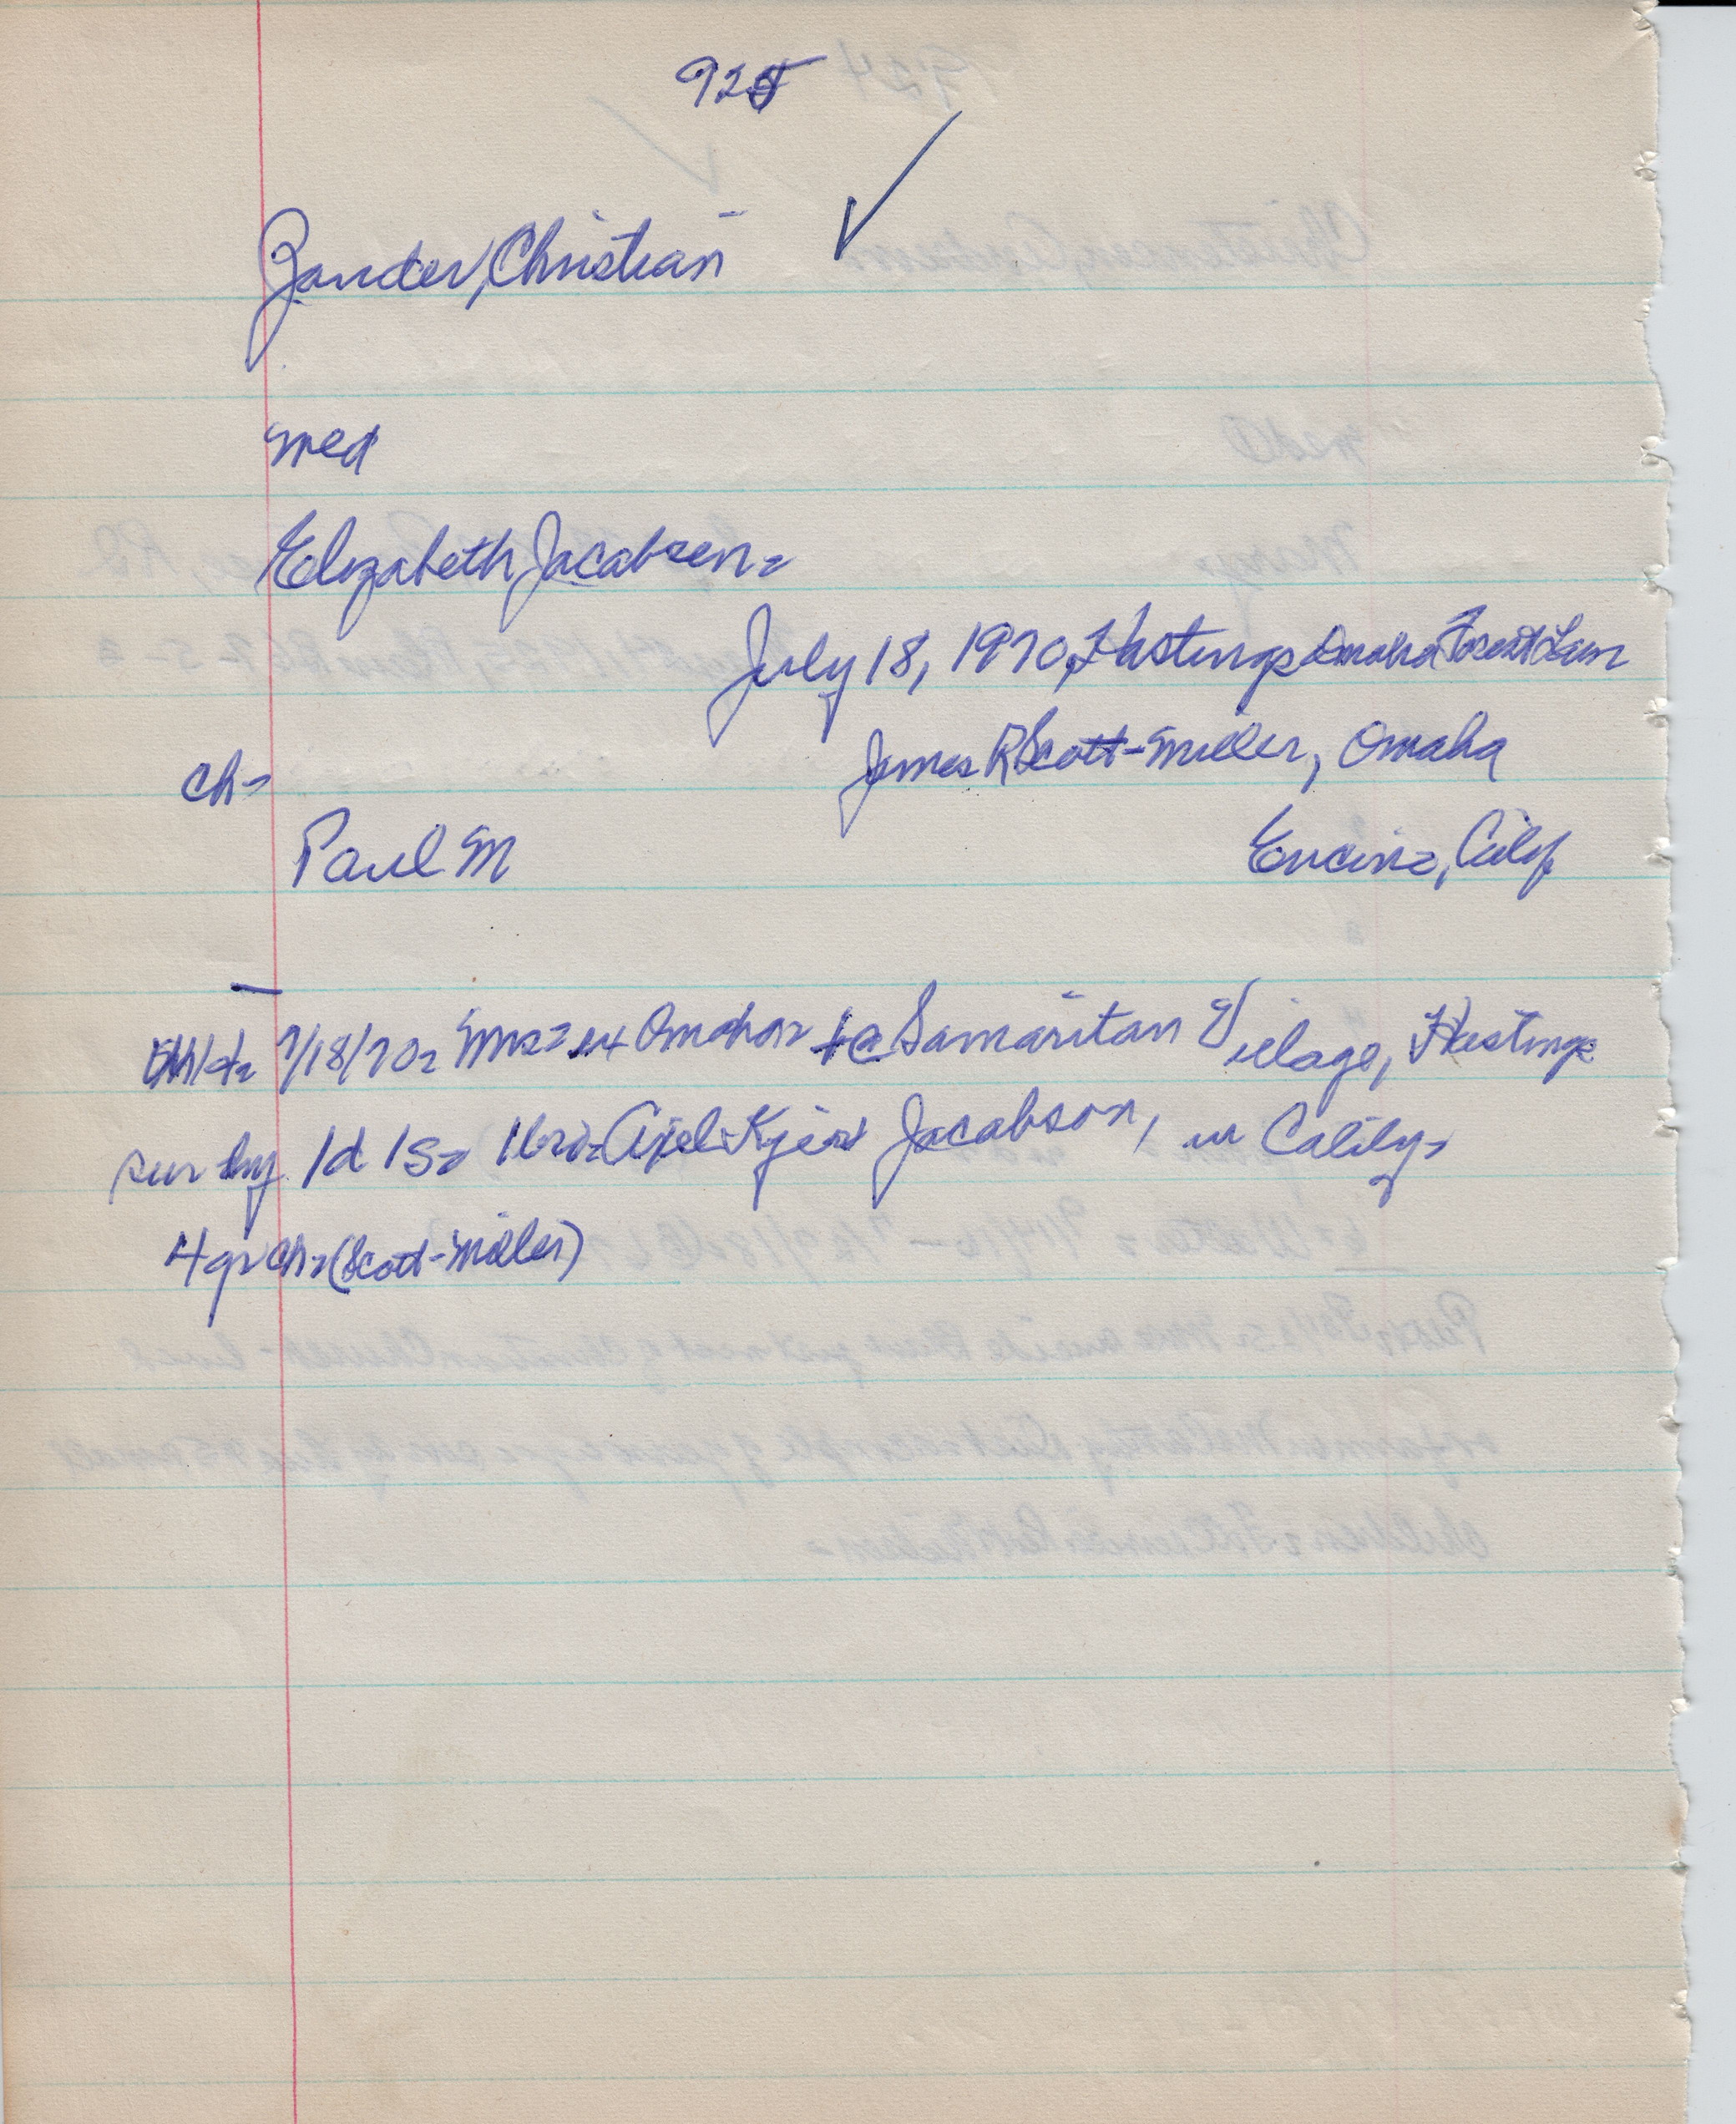 925
Zander, Christian
med
Elizabeth Jacobsen=
July 18, 1970, Hastings Omaha Forest Lawn
James R Scott-Miller, Omaha
ch=
Paul M
Encino, Calif
7/18/70= Mrs= Omaha= to Samaritan Village, Hastings
sur by 1d 1s= 1bro= Axel Kjer Jacobson, in Calif=
4 gr ch= (Scott-Miller)